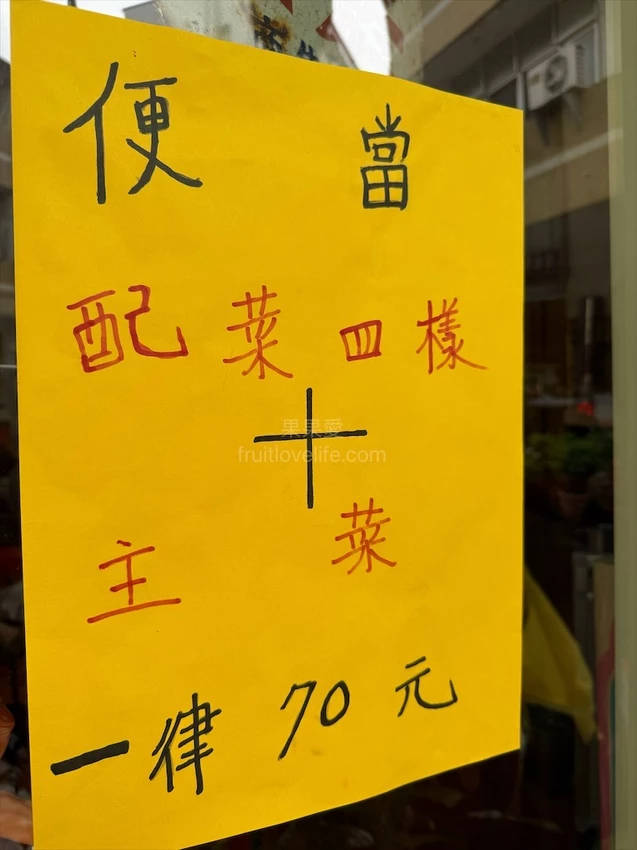 便當
配菜四樣
+
果果愛
fruitlovelife.com
主菜
一律70元